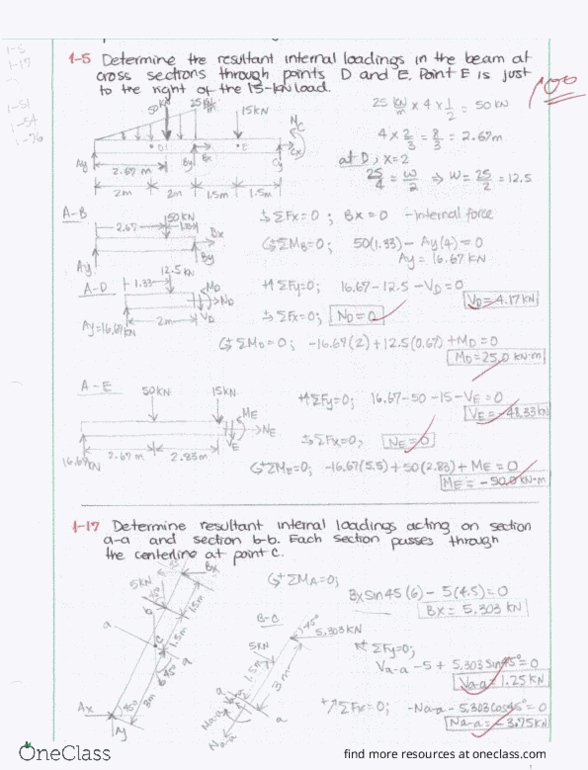 1-5 Determine the resultant internal loadings in the beam at
cross sections through points D and E. Point E is just
to the right of the 15-kN load.
100
1-5
1-17
1-51
1-54
1-76
25 kN/m × 4 × 1/2 = 50 kN
4 × 2/3 = 8/3 = 2.67m
at D, x=2
25/4 = w/2 ⇒ w = 25/2 = 12.5
50kN
15kN
Ay
By
Bx
Cy
2.67 m
2m
2m
1.5m
1.5m
A-B
2.67
50kN
Bx
Ay
By
ΣFx=0; Bx=0 -internal force
ΣMB=0; 50(1.33) - Ay(4) = 0
Ay = 16.67 kN
A-D
1.33
12.5 kN
MD
ND
VD
2m
Ay=16.67kN
+↑ΣFy=0; 16.67-12.5-VD=0
VD=4.17kN
ΣFx=0; ND=0
ΣMD=0; -16.67(2)+12.5(0.67)+MD=0
MD=25.0 kN·m
A-E
50kN
15kN
ME
NE
VE
16.67kN
2.67m
2.83m
+↑ΣFy=0; 16.67-50-15-VE=0
VE=-48.33kN
ΣFx=0, NE=0
ΣME=0; -16.67(5.5)+50(2.83)+ME=0
ME=-50.0 kN·m
1-17 Determine resultant internal loadings acting on section
a-a and section b-b. Each section passes through
the centerline at point C.
ΣMA=0;
Bx Sin45(6) - 5(4.5)=0
Bx = 5.303 kN
5kN
Bx
1.5m
1.5m
3m
45°
b
a
C
Ax
Ay
B-C
5kN
45°
5.303 kN
1.5m
3m
a
Na-a
ΣFy=0;
Va-a -5+5.303 Sin45°=0
Va-a=1.25 kN
ΣFx=0; -Na-a - 5.303cos45°=0
Na-a=-3.75kN
OneClass
find more resources at oneclass.com